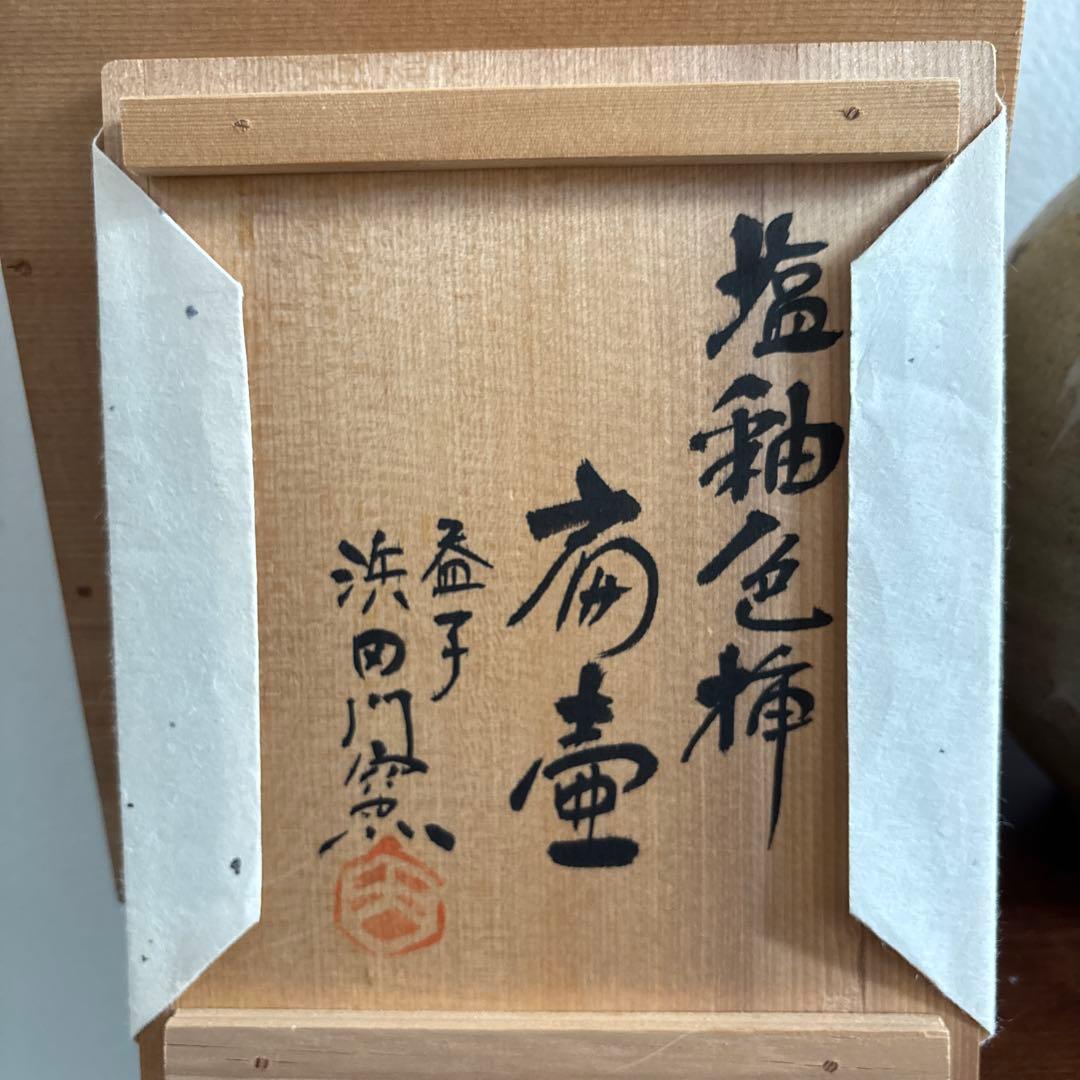 塩釉色挿
扁壷
益子
浜田門窯